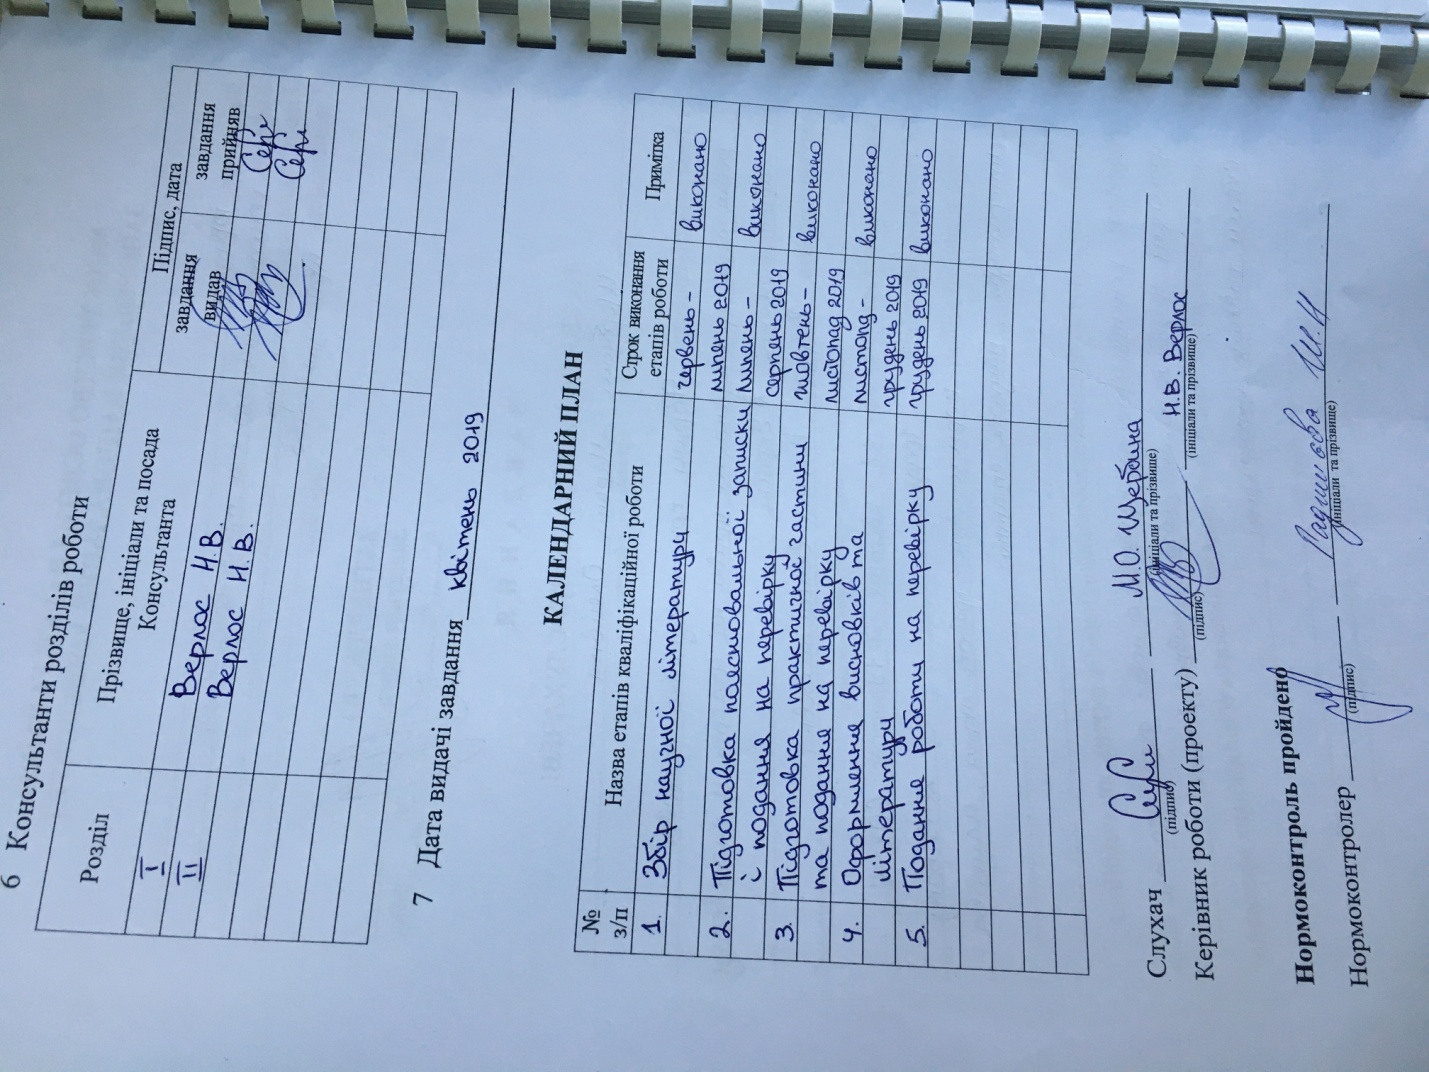 6 Консультанти розділів роботи
Розділ
Прізвище, ініціали та посада
Консультанта
Підпис, дата
завдання
видав
завдання
прийняв
I Верлос Н.В.
II Верлос Н.В.
7 Дата видачі завдання квітень 2019
КАЛЕНДАРНИЙ ПЛАН
№
з/п
Назва етапів кваліфікаційної роботи
Строк виконання
етапів роботи
Примітка
1. Збір наукної літератури червень – виконано
липень 2019
2. Підготовка пояснювальної записки липень – виконано
і подання на перевірку серпень 2019
3. Підготовка практичної частини жовтень – виконано
та подання на перевірку листопад 2019
4. Оформлення висновків та листопад – виконано
літератури грудень 2019
5. Подання роботи на перевірку грудень 2019 виконано
Слухач М.О. Щербина
(підпис) (ініціали та прізвище)
Керівник роботи (проекту) Н.В. Верлос
(підпис) (ініціали та прізвище)
Нормоконтроль пройдено
Нормоконтролер
(підпис) (ініціали та прізвище)